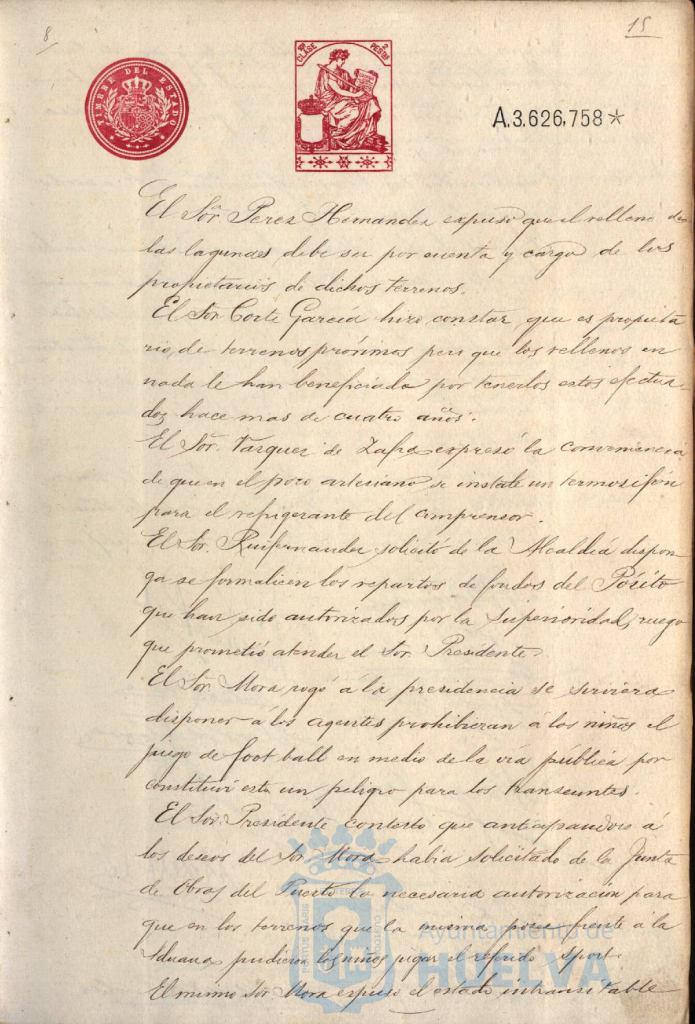 8
15
TIMBRE DEL ESTADO
10ª CLASE 2 PESTAS
A.3.626,758*
El Sor. Perez Hernandez expuso que el relleno de
las lagunas debe ser por cuenta y cargo de los
propietarios de dichos terrenos.
El Sor Corte Garcia hizo constar, que es propieta
rio, de terrenos próximos pero que los rellenos en
nada le han beneficiado por tenerlos estos efectua-
dos hace mas de cuatro años.
El Sor. Vazquez de Zafra expresó la conveniencia
de que en el pozo artesiano se instale un termosifón
para el refrigerante del compresor.
El Sor. Ruifernandez solicitó de la Alcaldía dispon-
ga se formalicen los repartos de fondos del Pósito
que han sido autorizados por la superioridad, ruego
que prometió atender el Sor. Presidente.
El Sor. Mora rogó á la presidencia se sirviera
disponer á los agentes prohibieran á los niños el
juego de foot ball en medio de la vía pública por
constituir esto un peligro para los transeuntes.
El Sor. Presidente contestó que anticipandose á
los deseos del Sor Mora había solicitado de la Junta
de Obras del Puerto la necesaria autorización para
que en los terrenos que la misma posee frente á la
Aduana pudieran los niños jugar el referido sport.
El mismo Sor Mora expuso el estado intransitable
Ayuntamiento de
HUELVA